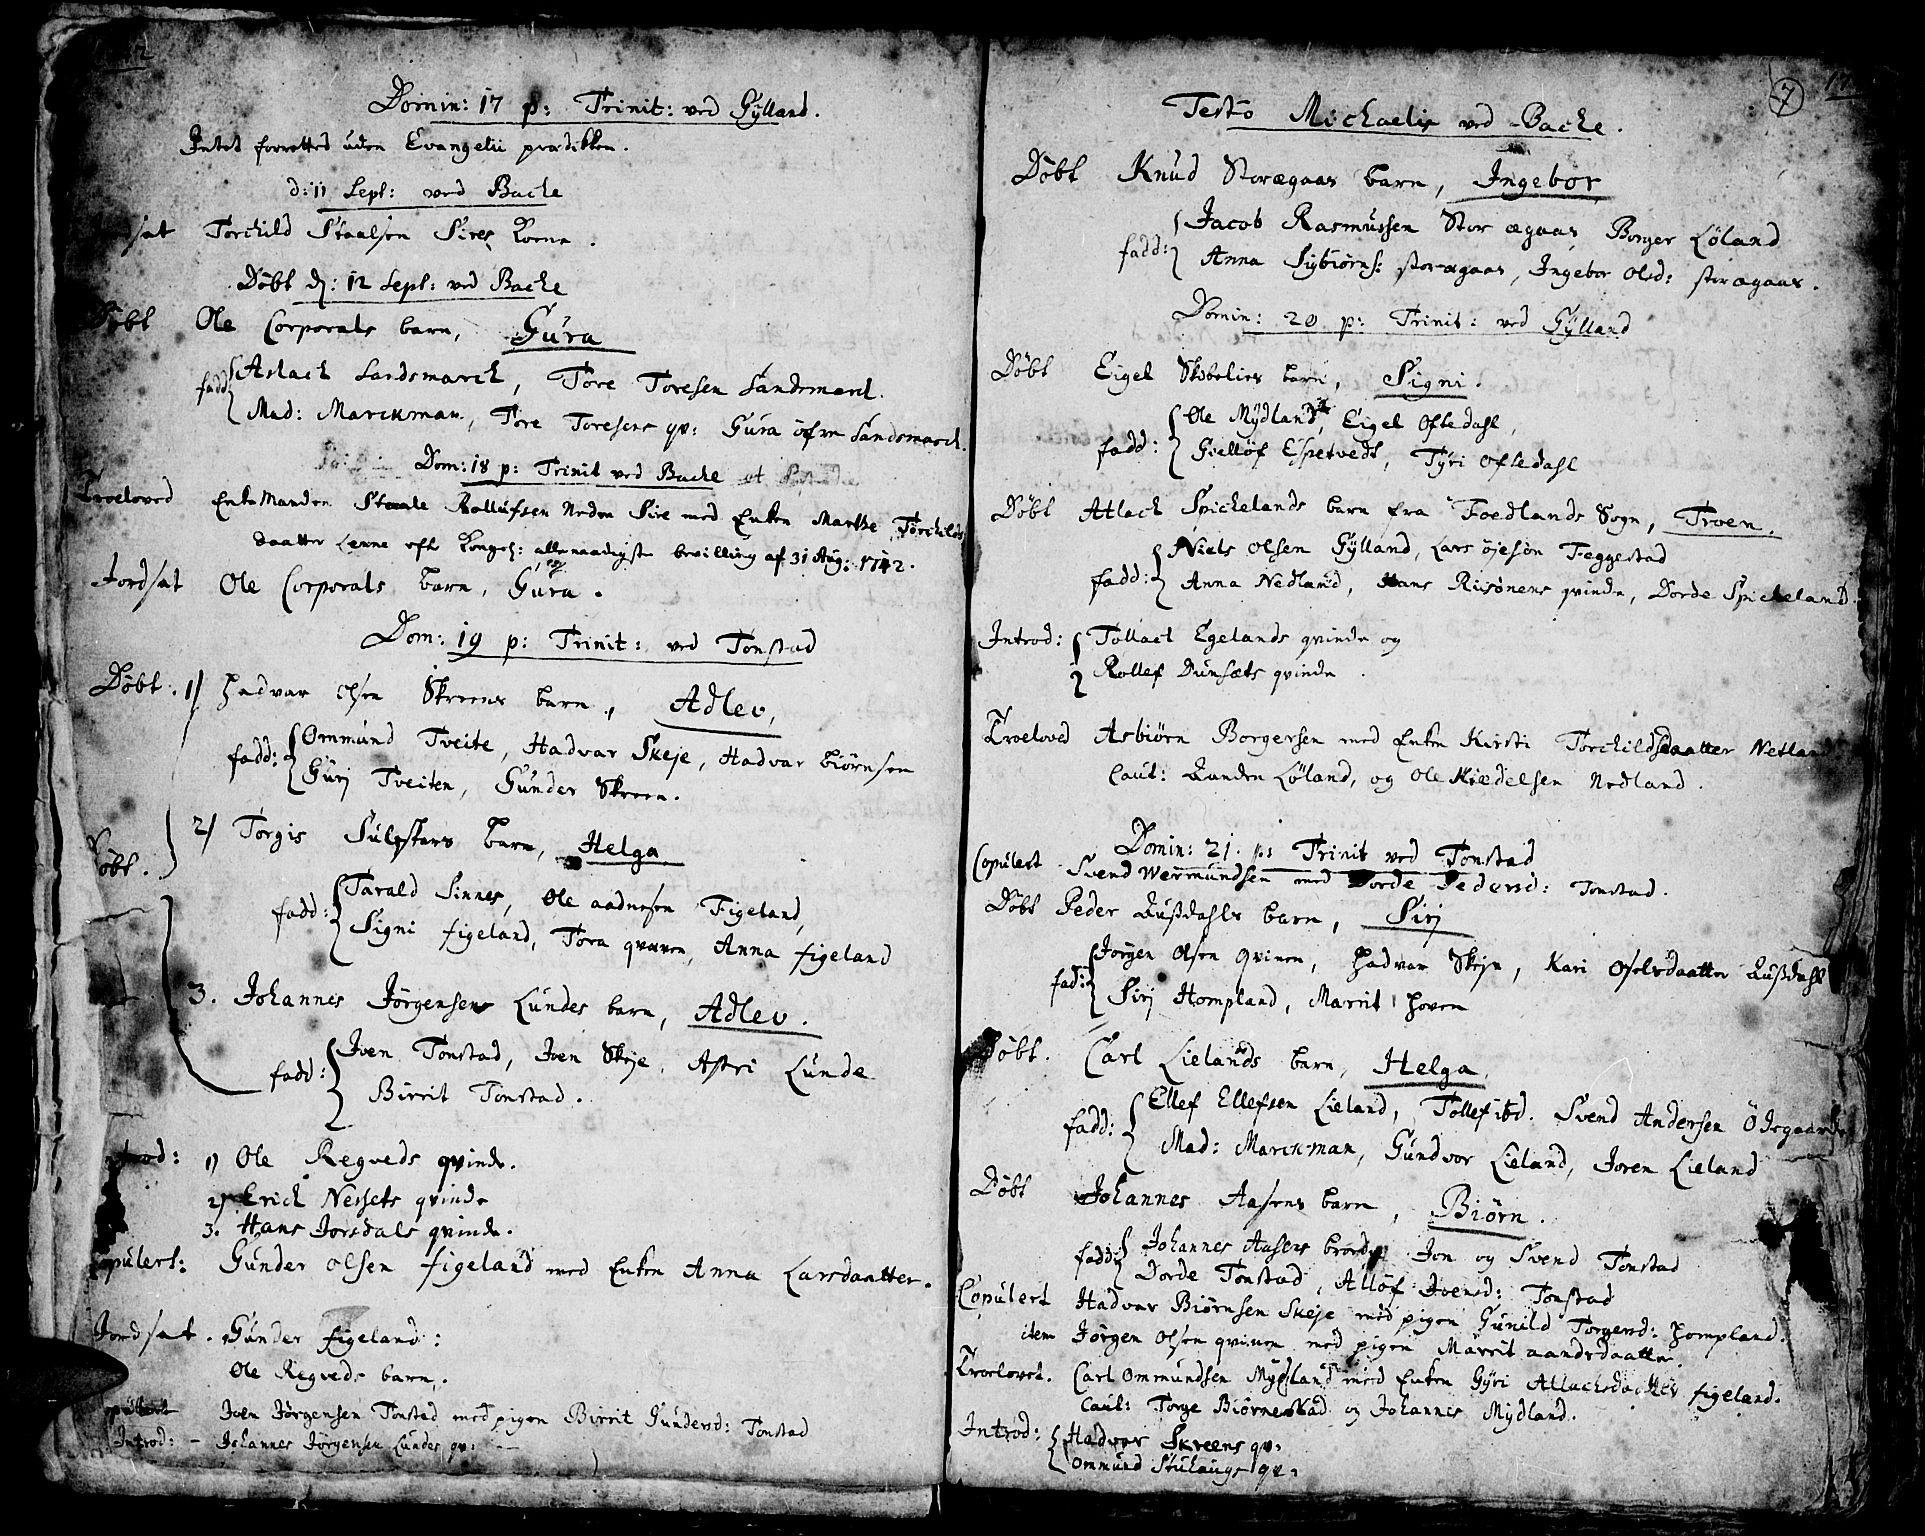 Domin: 17 p: Trinit: ved Gÿlland.
Intet forretted uden Evangelii prædikken.
d: 11 Sept: ved Backe
Torchild Staalsen Sires Kone.
Döbt d: 12 Sept: ved Backe
Döbt Ole Corporals barn, Gúra
fadd: Aslach Landsmarck, Tore Toresen Landsmarck.
Mad: Marckman, Tore Toresens qv: Gúra öfre Landsmarck.
Dom: 18 p: Trinit ved Backe
Troeloved Enke Manden Staale Rollufsen Neden Sire med Enken Marthe Torchilds
daatter Lenne eft Kongel: allernaadigste bevilling af 31 Aug: 1742.
Jordsat Ole Corporals barn, Gúra.
Dom: 19 p: Trinit: ved Tonstad
Döbt. 1) Hadvar Olsen Skreens barn, Adlev,
fadd: Ommund Tveite, Hadvar Skeje, Hadvar Biörnsen
Gúrj Tveiten, Gunder Skreen.
Döbt. 2) Torgis barn, Helga
fadd: Tarald Sinnes, Ole aadnesen Figeland,
Signi figeland, Tora qvæven, Anna figeland
3. Johannes Jörgensens Lundes barn, Adlev.
fadd: Joen Tonstad, Joen Skeje, Astri Lunde
Birrit Tonstad.
Introd: 1) Ole Regveds qvinde.
2) Erich Nessets qvinde
3. Hans Josdals qvinde.
Copulert: Gunder Olsen figeland med Enken Anna Larsdaatter.
Jordsat. Gunder figeland:
Ole Regveds barn.
Copulert Joen Jörgensen Tonstad med pigen Birrit Gundersd: Tonstad
Introd: - Johannes Jörgensen Lundes qv: —
7
Festo Michaelis ved Backe.
Döbt Knud Storægaas barn, Ingebor
fadd: Jacob Rasmussen Stor ægaas, Borger Löland
Anna Sÿbiörns: storægaas, Ingebor Olsd: storægaas.
Domin: 20 p: Trinit: ved Gÿlland
Döbt Eigel Skibelies barn, Signi.
fadd: Ole Mÿdland, Eigel Oftedahl,
Giellöf Espetvedt, Tÿri Oftedahl
Döbt Atlach Spickelands barn fra Foedlands Sogn, Troen.
fadd: Niels Olsen Gÿlland, Lars öjesön Feggestad
Anna Nedland, Hans Risönens qvinde, Dorde Spickeland.
Introd: Tollach Egelands qvinde og
Rollef Dunsæts qvinde.
Troeloved Asbiörn Borgersen med Enken Kirsti Torchildsdaatter Netland
Caut: Löland, og Ole Kiædelsen Nedland.
Domin: 21. p: Trinit ved Tonstad
Copulert Svend Wermundsen med Dorde Pedersd: Tonstad.
Döbt Peder Rußdahls barn, Sirj
fad: Jörgen Olsen qvinen, Hadvar Skeje, Kari Oselvdaatter Rußdahl
Sirj Hompland, Marrit Hoven
Döbt. Carl Lielands barn, Helga.
fadd: Ellef Ellefsen Lieland, Tollef ibd. Svend Andersen Ödegaarde
Mad: Marckman, Gundvor Lieland, Joren Lieland
Döbt Johannes Aasens barn, Biörn.
fadd: Johannes Aasens broder, Jon og Svend Tonstad
Dorde Tonstad, Allöf Joensd: Tonstad
Copulert Hadvar Biörnsen Skeje med pigen Gunild Torgersd: Hompland.
item Jörgen Olsen qvinen med pigen Marrit aandsdaatter.
Troelovet. Carl Ommundsen Mÿdland med Enken Gÿri Atlachsdatter figeland.
Caut: Torge Biörnestad og Johannes Mÿdland.
Introd: Hadvor Skreens qv:
Ommund Stuhaugs qv: